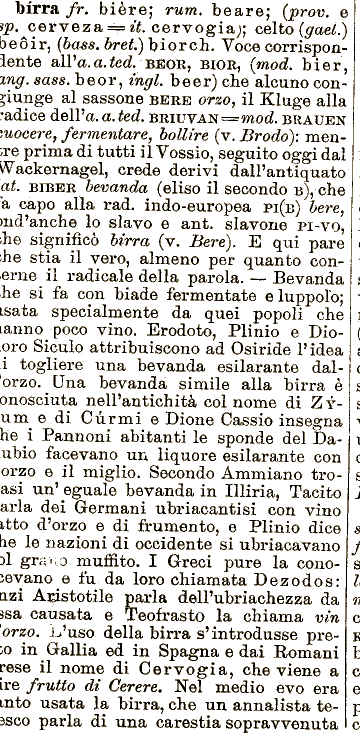 birra fr. bière; rum. beare; (prov. e
sp. cerveza = it. cervogia); celto (gael.)
beôir, (bass. bret.) biorch. Voce corrispon-
dente all'a.a.ted. BEOR, BIOR, (mod. bier,
ang. sass. beor, ingl. beer) che alcuno con-
giunge al sassone BERE orzo, il Kluge alla
radice dell'a. a. ted. BRIUVAN = mod. BRAUEN
cuocere, fermentare, bollire (v. Brodo): men-
tre prima di tutti il Vossio, seguito oggi dal
Wackernagel, crede derivi dall'antiquato
lat. BIBER bevanda (eliso il secondo B), che
fa capo alla rad. indo-europea PI(B) bere,
ond'anche lo slavo e ant. slavone PI-VO,
che significò birra (v. Bere). E qui pare
che stia il vero, almeno per quanto con-
cerne il radicale della parola. — Bevanda
che si fa con biade fermentate e luppolo;
usata specialmente da quei popoli che
hanno poco vino. Erodoto, Plinio e Dio-
doro Siculo attribuiscono ad Osiride l'idea
di togliere una bevanda esilarante dal-
l'orzo. Una bevanda simile alla birra è
conosciuta nell'antichità col nome di Zý-
um e di Cúrmi e Dione Cassio insegna
che i Pannoni abitanti le sponde del Da-
nubio facevano un liquore esilarante con
l'orzo e il miglio. Secondo Ammiano tro-
vasi un' eguale bevanda in Illiria, Tacito
parla dei Germani ubriacantisi con vino
fatto d'orzo e di frumento, e Plinio dice
che le nazioni di occidente si ubriacavano
col grano muffito. I Greci pure la cono-
scevano e fu da loro chiamata Dezodos:
anzi Aristotile parla dell'ubriachezza da
essa causata e Teofrasto la chiama vin
d'orzo. L'uso della birra s'introdusse pre-
sto in Gallia ed in Spagna e dai Romani
prese il nome di Cervogia, che viene a
dire frutto di Cerere. Nel medio evo era
tanto usata la birra, che un annalista te-
desco parla di una carestia sopravvenuta